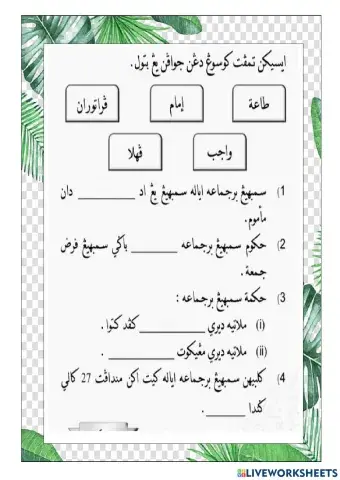 ايسيكن تمڤت كوسوڠ دڠن جواڤن يڠ بتول.
طاعة
إمام
ڤراتوران
واجب
ڤهلا
1) سمبهيڠ برجماعه اياله سمبهيڠ يڠ اد ________ دان
مأموم.
2) حكوم سمبهيڠ برجماعه ________ باڬي سمبهيڠ فرض
جمعة.
3) حكمة سمبهيڠ برجماعه :
(i) ملاتيه ديري ________ كڤد كتوا.
(ii) ملاتيه ديري مڠيكوت ________.
4) كلبيهن سمبهيڠ برجماعه اياله كيت اكن منداڤت 27 كالي
ڬندا ________.
LIVEWORKSHEETS